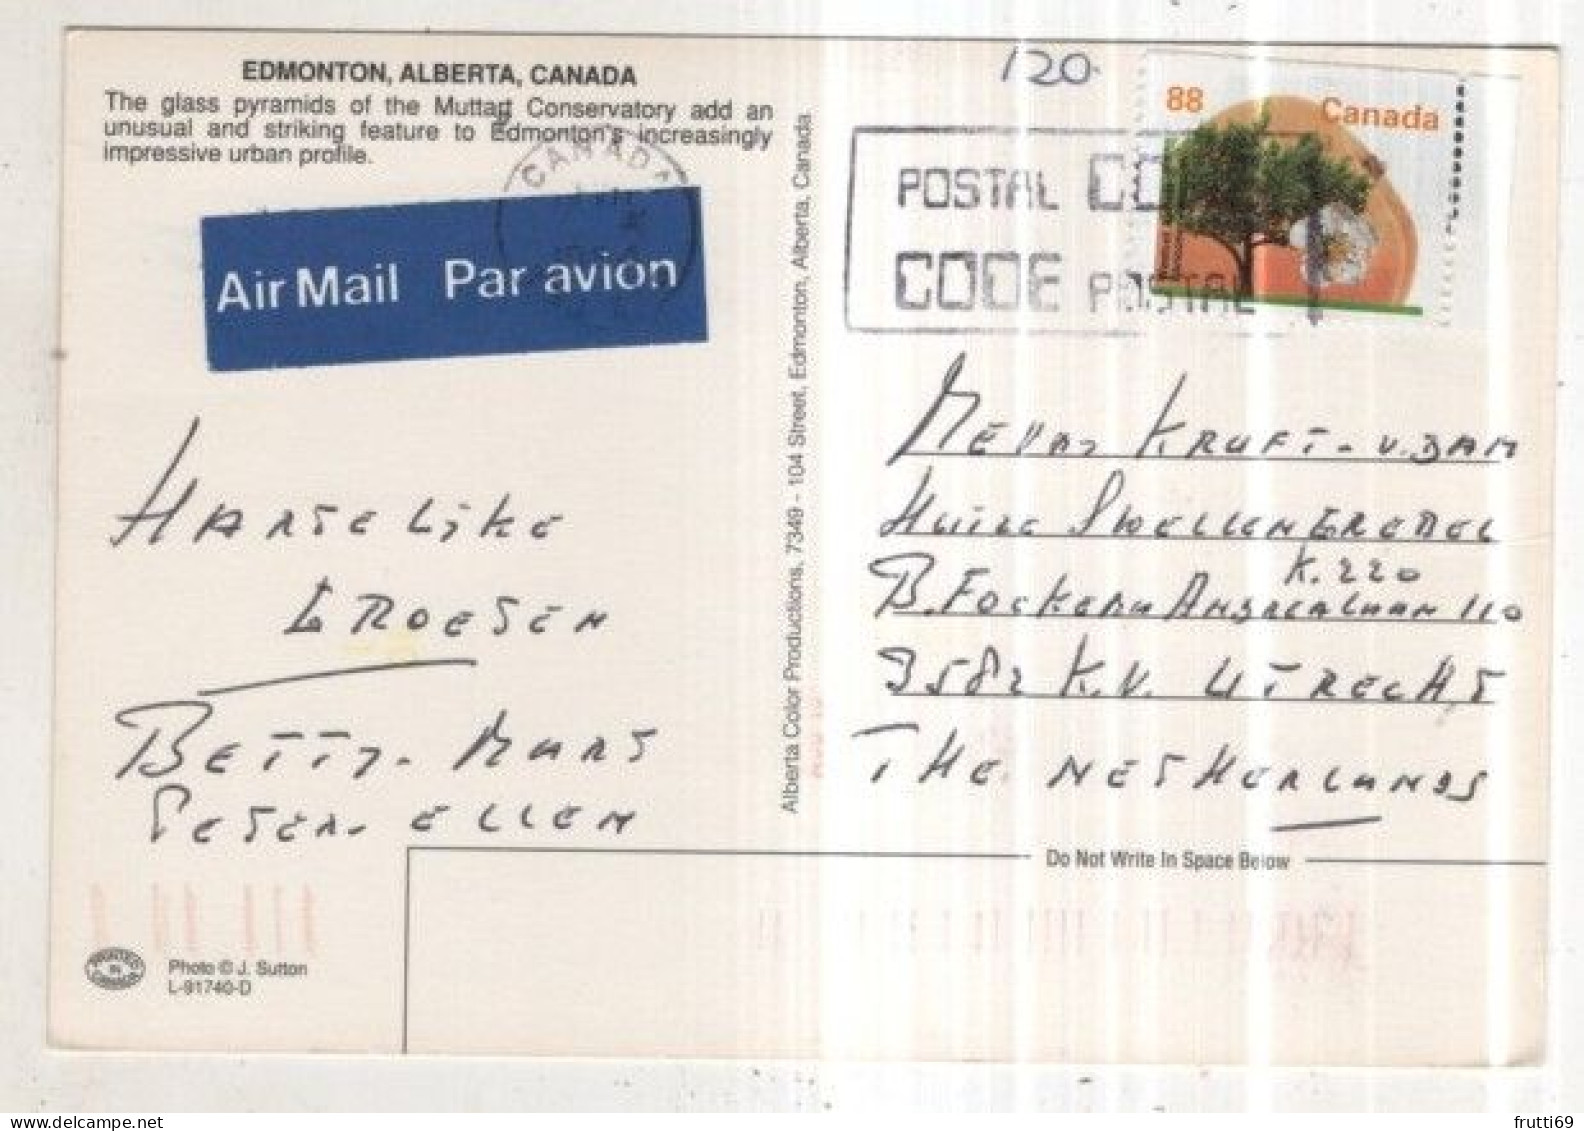 EDMONTON, ALBERTA, CANADA
The glass pyramids of the Muttart Conservatory add an
unusual and striking feature to Edmonton's increasingly
impressive urban profile.
120.
88 Canada
CANADA
POSTAL CODE
CODE POSTAL
Air Mail Par avion
HARTELIJKE
GROESEN
BETTY - MART
PETER - ELLEN
Alberta Color Productions, 7349 - 104 Street, Edmonton, Alberta, Canada.
KRUFT - V. DAM
HUIZE SWELLENGREBEL
K. 220
B. FOCKEMA ANDREALAAN 110
3582 K.V. UTRECHT
THE NETHERLANDS
Do Not Write In Space Below
PRINTED IN CANADA
Photo © J. Sutton
L-91740-D
frutti69